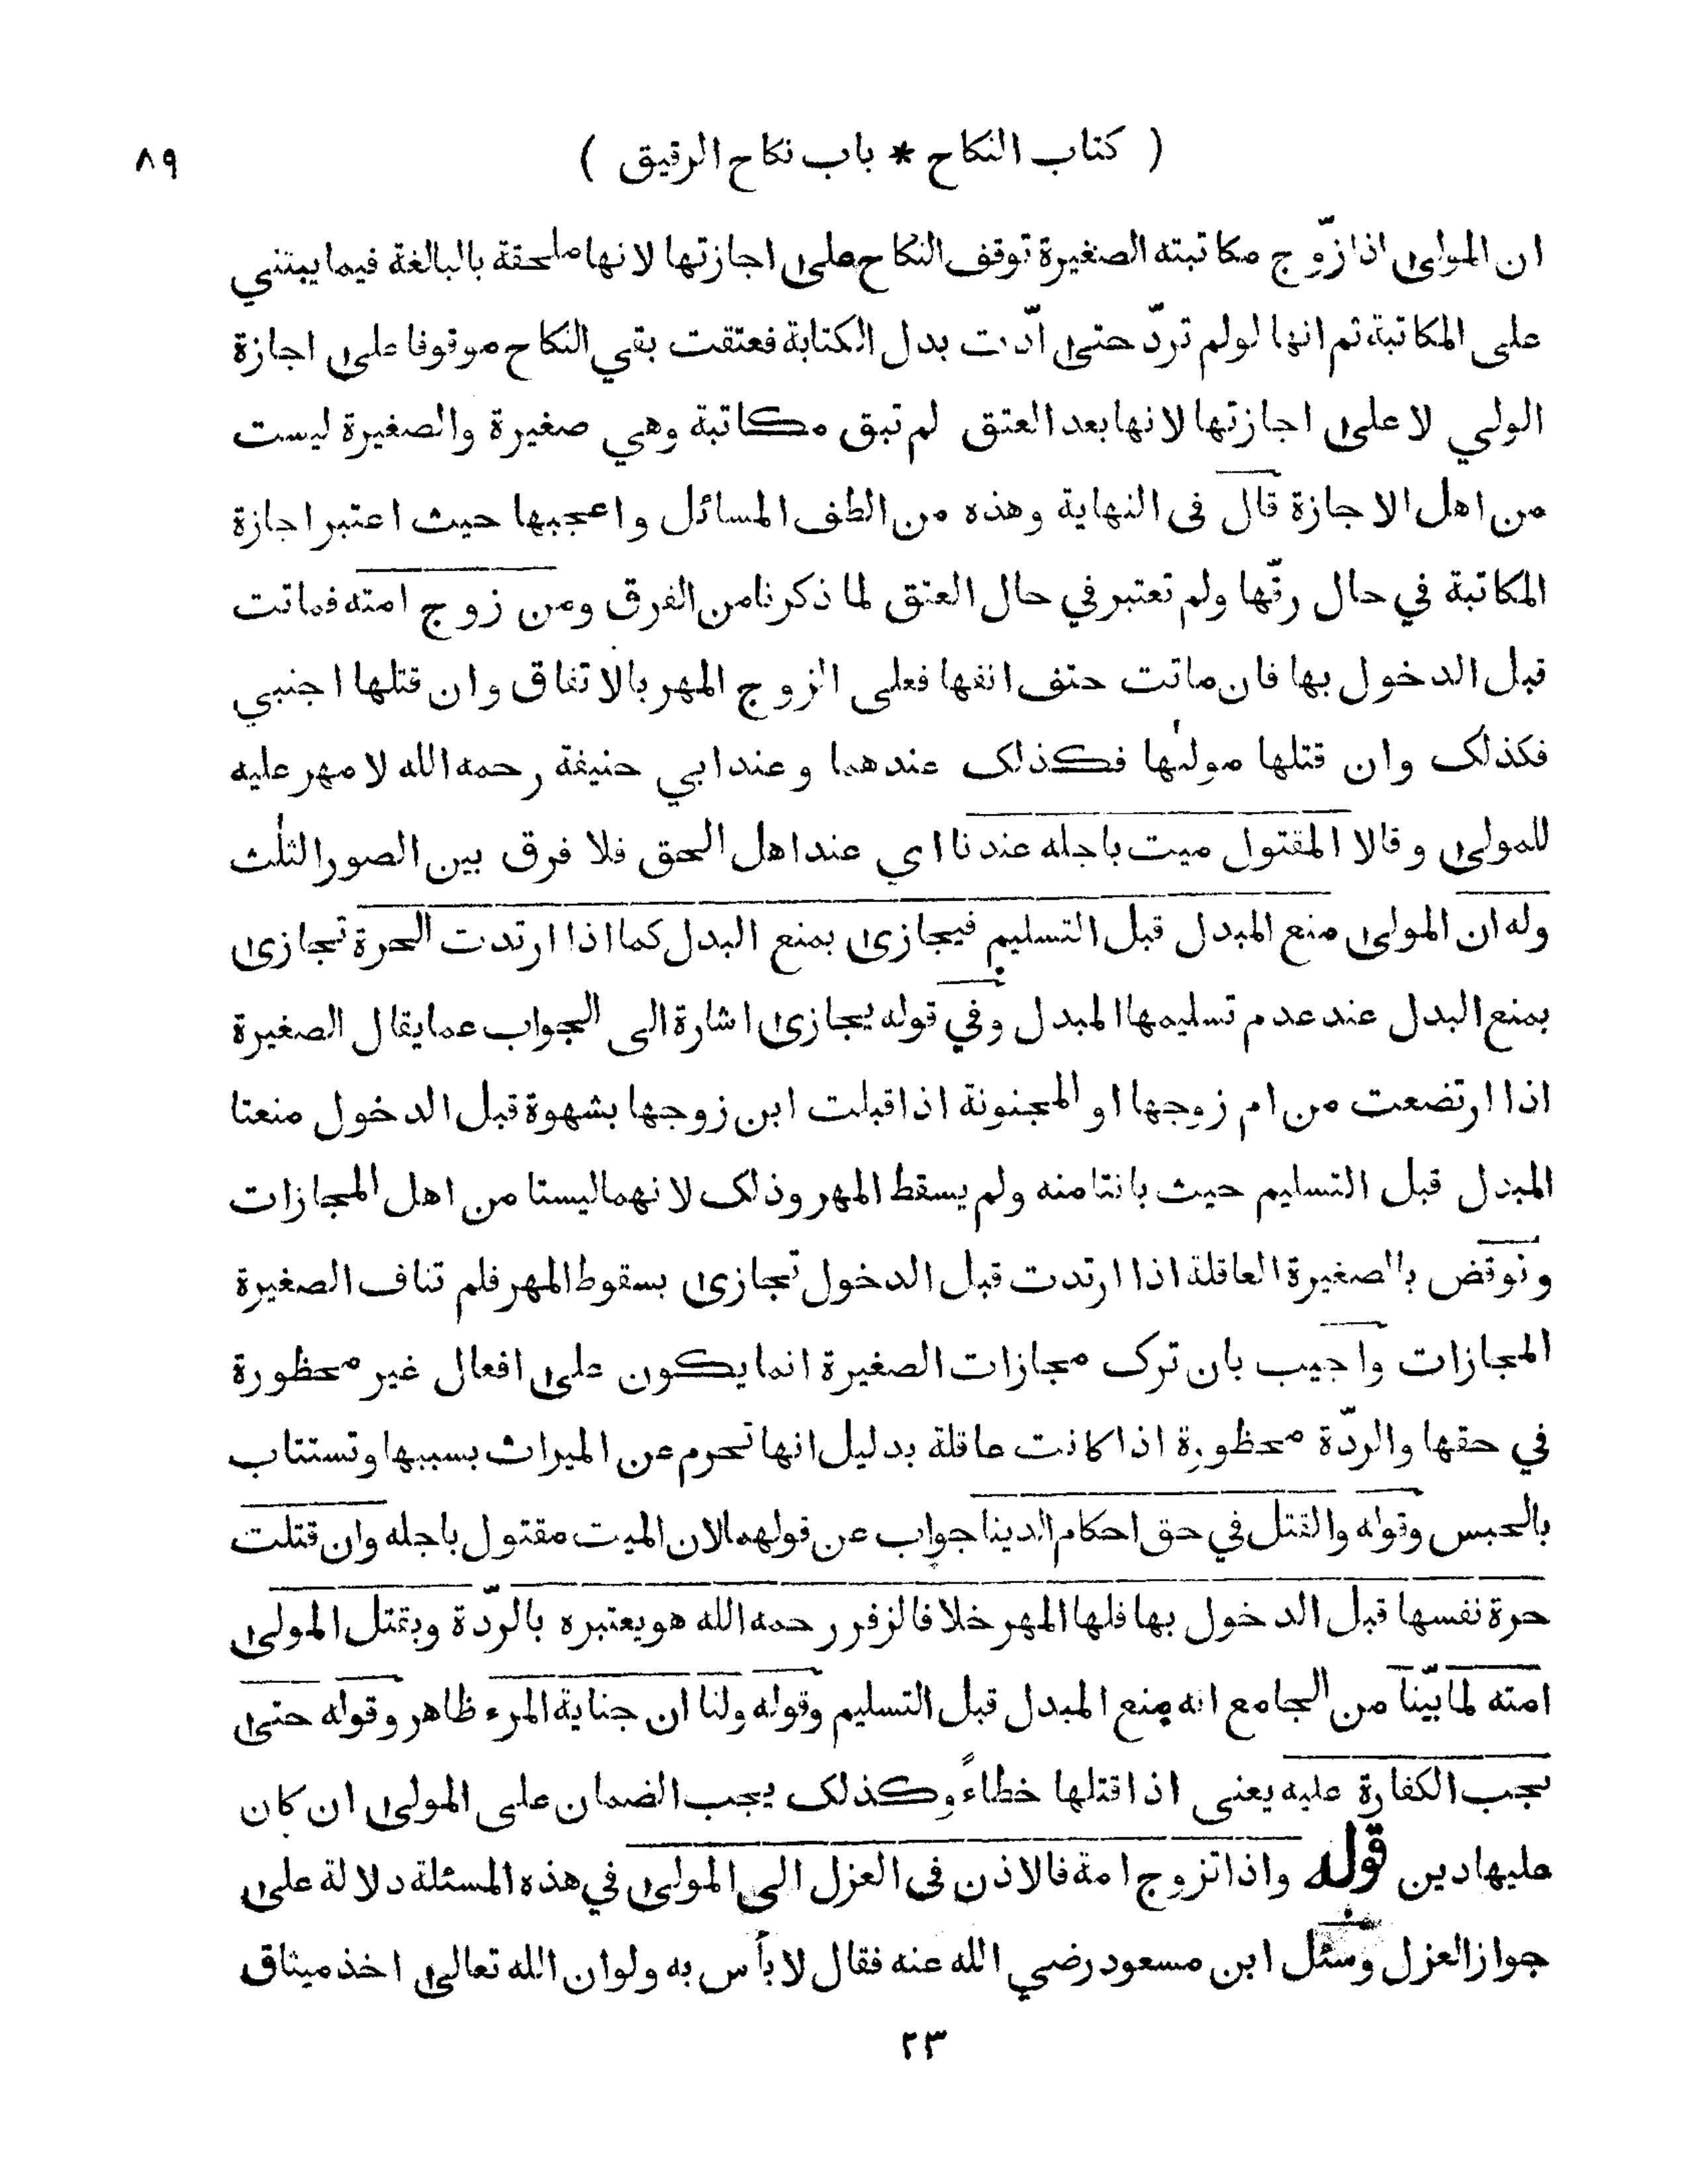 ( كتاب النكاح * باب نكاح الرقيق )
٨٩
ان المولى اذا زوّج مكاتبته الصغيرة توقف النكاح على اجازتها لانها ملحقة بالبالغة فيما يبتني
على المكاتبة ثم انها لو لم تردّ حتى ادّت بدل الكتابة فعتقت بقي النكاح موقوفا على اجازة
الولي لا على اجازتها لانها بعد العتق لم تبق مكاتبة وهي صغيرة والصغيرة ليست
من اهل الاجازة قال فى النهاية وهذه من الطف المسائل واعجبها حيث اعتبر اجازة
المكاتبة في حال رقّها ولم تعتبر في حال العتق لما ذكرنا من الفرق ومن زوج امته فماتت
قبل الدخول بها فان ماتت حتف انفها فعلى الزوج المهر بالاتفاق وان قتلها اجنبي
فكذلك وان قتلها مولىٰها فكذلك عندهما وعند ابي حنيفة رحمه الله لا مهر عليه
للمولى وقالا المقتول ميت باجله عندنا اي عند اهل الحق فلا فرق بين الصور الثلٰث
وله ان المولى منع المبدل قبل التسليم فيجازى بمنع البدل كما اذا ارتدت الحرة تجازى
بمنع البدل عند عدم تسليمها المبدل وفي قوله يجازى اشارة الى الجواب عما يقال الصغيرة
اذا ارتضعت من ام زوجها او المجنونة اذا قبلت ابن زوجها بشهوة قبل الدخول منعتا
المبدل قبل التسليم حيث بانتا منه ولم يسقط المهر وذلك لانهما ليستا من اهل المجازات
ونوقض بالصغيرة العاقلة اذا ارتدت قبل الدخول تجازى بسقوط المهر فلم تناف الصغيرة
المجازات واجيب بان ترك مجازات الصغيرة انما يكون على افعال غير محظورة
في حقها والردّة محظورة اذا كانت عاقلة بدليل انها تحرم عن الميراث بسببها وتستتاب
بالحبس وقوله والقتل في حق احكام الدينا جواب عن قولهما لان الميت مقتول باجله وان قتلت
حرة نفسها قبل الدخول بها فلها المهر خلافا لزفر رحمه الله هو يعتبره بالردّة وبقتل المولى
امته لما بيّنا من الجامع انه منع المبدل قبل التسليم وقوله ولنا ان جناية المرء ظاهر وقوله حتى
تجب الكفارة عليه يعنى اذا قتلها خطاءً وكذلك يجب الضمان على المولى ان كان
عليها دين قوله واذا تزوج امة فالاذن فى العزل الى المولى في هذه المسئلة دلالة على
جواز العزل وسئل ابن مسعود رضي الله عنه فقال لا بأس به ولو ان الله تعالى اخذ ميثاق
٢٣